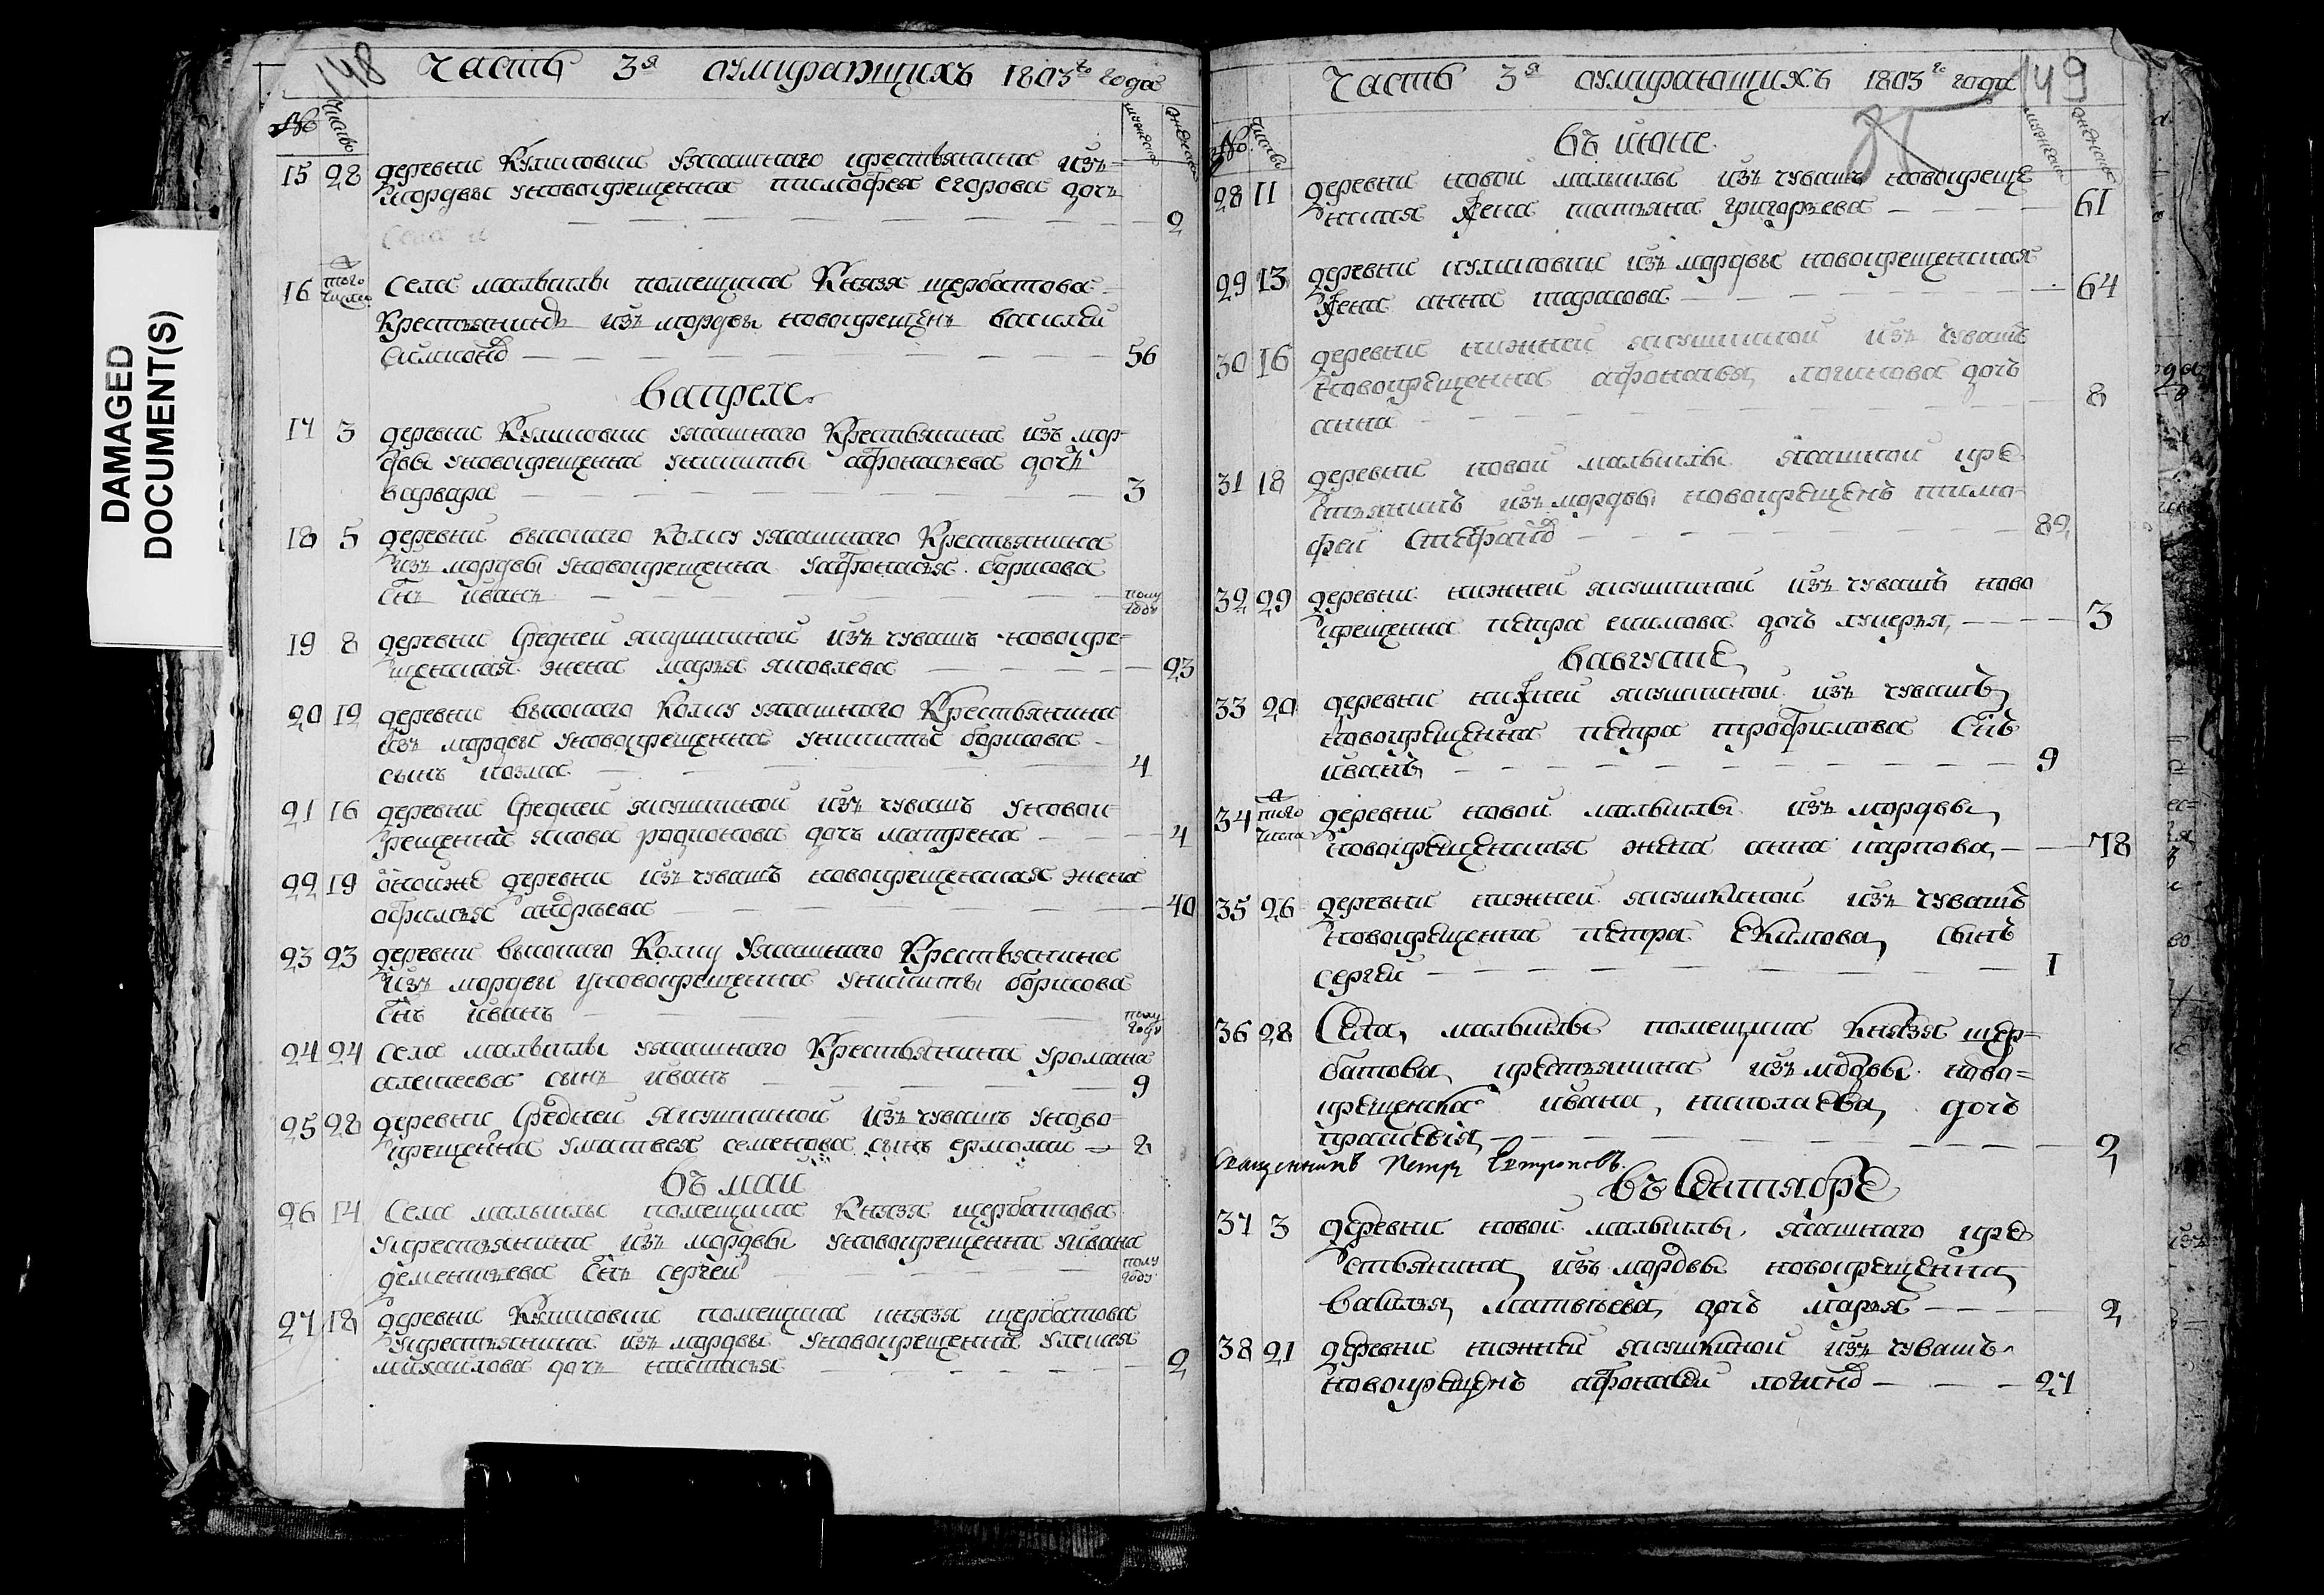 DAMAGED
DOCUMENT(S)
148
Часть 3я оумирающихъ 1803го года
№ число мужеска женска
15 28 деревни Куликовки уясашнаго крестьянина изъ=
мордвы уновокрещенна тимофея егорова дочь
2
16 того числа Села малыклы помещика Князя щербатова
Крестьянинъ изъ мордвы новокрещенъ василей
56
вапреле
17 3 деревни Куликовки уясашнаго Крестьянина изъ мор-
двы уновокрещенна уникиты афонасьева дочь
варвара 3
18 5 деревни высокаго Колку уясашнаго Крестьянина
изъ мордвы уновокрещенна уафонасья борисова
снъ иванъ полу году
19 8 деревни Средней якушкиной изъ чувашъ новокре=
щенская жена марья яковлева 23
20 12 деревни высокаго Колку уясашнаго Крестьянина
изъ мордвы уновокрещенна уникиты борисова
сынъ козма 4
21 16 деревни Средней якушкиной изъ чувашъ уновок
рещенна якова родионова дочь матрена 4
22 19 онойже деревни изъ чувашъ новокрещенская жена
офимья андрѣева 40
23 23 деревни высокаго Колку уясашнаго Крестьянина
изъ мордвы уновокрещенна уникиты борисова
снъ иванъ полу году
24 24 Села малыклы уясашнаго Крестьянина уромана
алексеева сынъ иванъ 9
25 28 деревни Средней якушкиной изъ чувашъ уново
крещенна уматвея семенова сынъ ермолаи 2
въ маи
26 14 Села малыклы помещика Князя щербатова
укрестьянина изъ мордвы уновокрещенна уивана
дементьева снъ сергеи полу году
27 18 деревни Куликовки помещика князя щербатова
укрестьянина изъ мордвы уновокрещенна
михаилова дочь настасья 2
149
Часть 3я оумирающихъ 1803го года
№ число мужеска женска
въ июне
28 11 деревни новой малыклы изъ чувашъ новокреще
нская жена татьяна григорьева 61
29 13 деревни куликовки изъ мордвы новокрещенская
жена анна тарасова 64
30 16 деревни нижней якушкиной изъ чувашъ
новокрещенна афонасья логинова дочь
анна 8
31 18 деревни новой малыклы ясашной кре
стьянинъ изъ мордвы новокрещенъ тимо-
фей 82
32 29 деревни нижней якушкиной изъ чувашъ ново
крещенна петра екимова дочь лукерья 3
вавгусте
33 20 деревни нижней якушкиной изъ чувашъ
новокрещенна петра трофимова снъ
иванъ 9
34 того числа деревни новой малыклы изъ мордвы
новокрещенская жена анна карпова 78
35 26 деревни нижней якушкиной изъ чувашъ
новокрещенна петра Екимова сынъ
сергеи 1
36 28 Села малыклы помещика Князя щер=
батова крестьянина изъ мордвы ново=
крещенска ивана николаева дочь
2
Священникъ Петръ
въ Сентябре
37 3 деревни новой малыклы ясашнаго кре
стьянина изъ мордвы новокрещенна
василья матвеева дочь марья 2
38 21 деревни нижней якушкиной изъ чувашъ
новокрещенъ афонасей 27